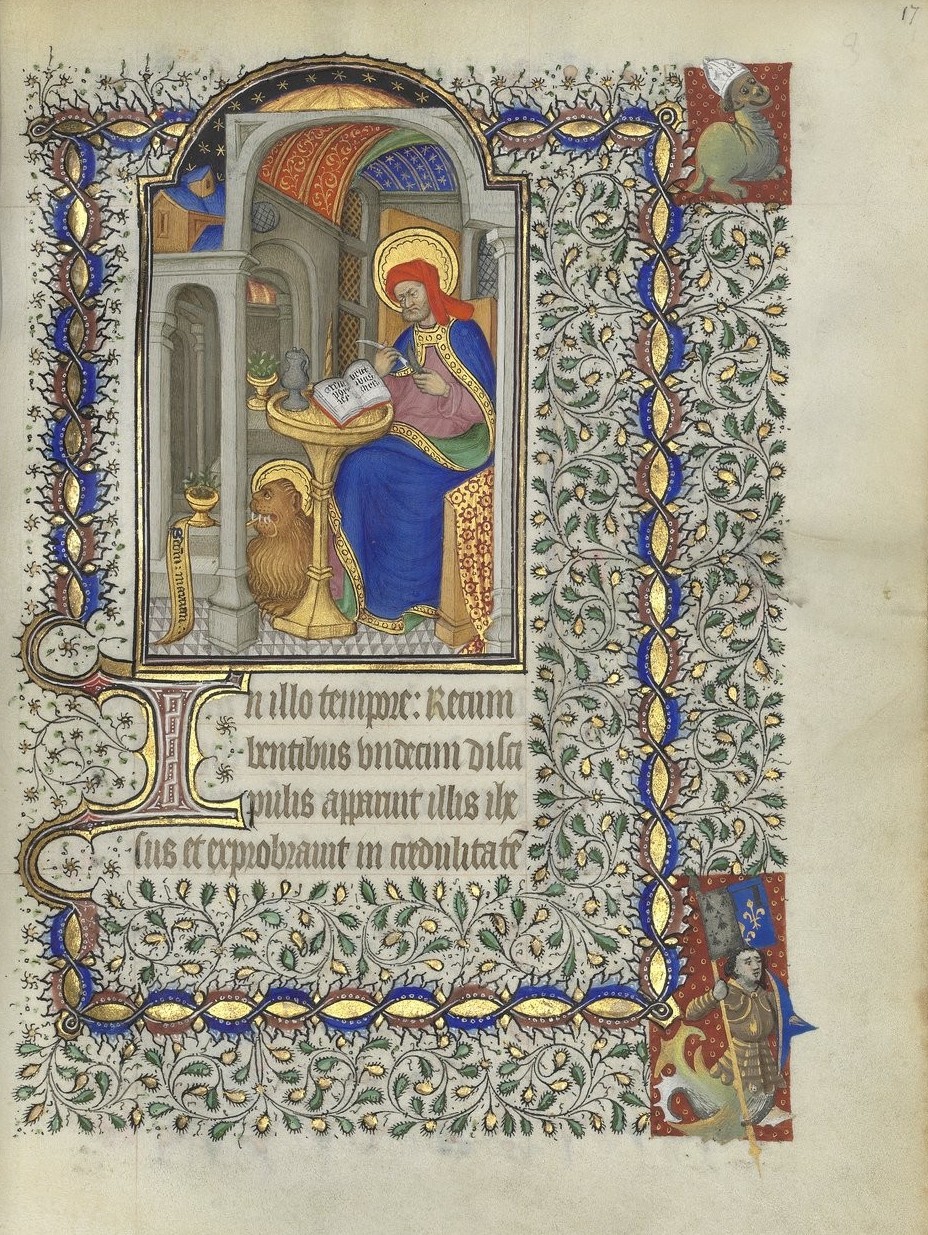 17
n illo tempore: Recum
bentibus vndecim disci
pulis apparuit illis ihe
sus et exprobrauit in credulitatē